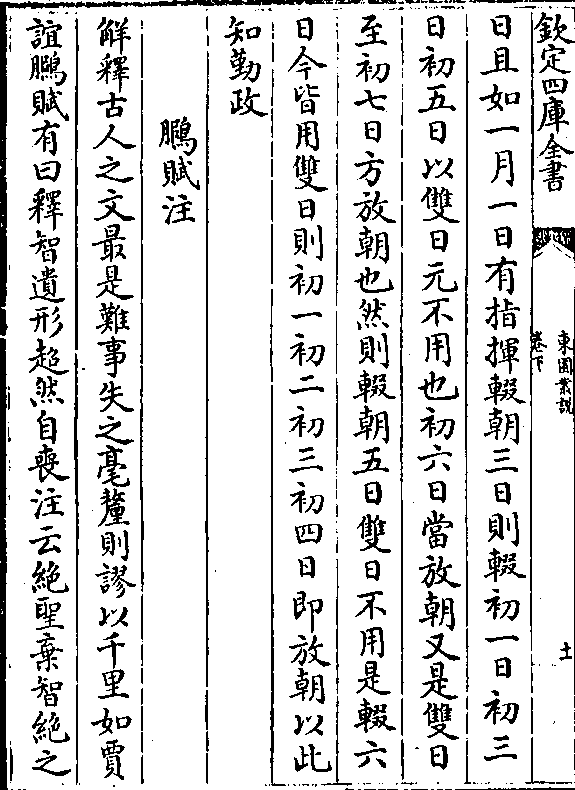 欽定四庫全書
東園叢說
卷下
十一
日且如一月一日有指揮輟朝三日則輟初一日初三
日初五日以雙日元不用也初六日當放朝又是雙日
至初七日方放朝也然則輟朝五日雙日不用是輟六
日今皆用雙日則初一初二初三初四日即放朝以此
知勤政
鵩賦注
解釋古人之文最是難事失之毫釐則謬以千里如賈
誼鵩賦有曰釋智遺形超然自喪注云絶聖棄智絶之